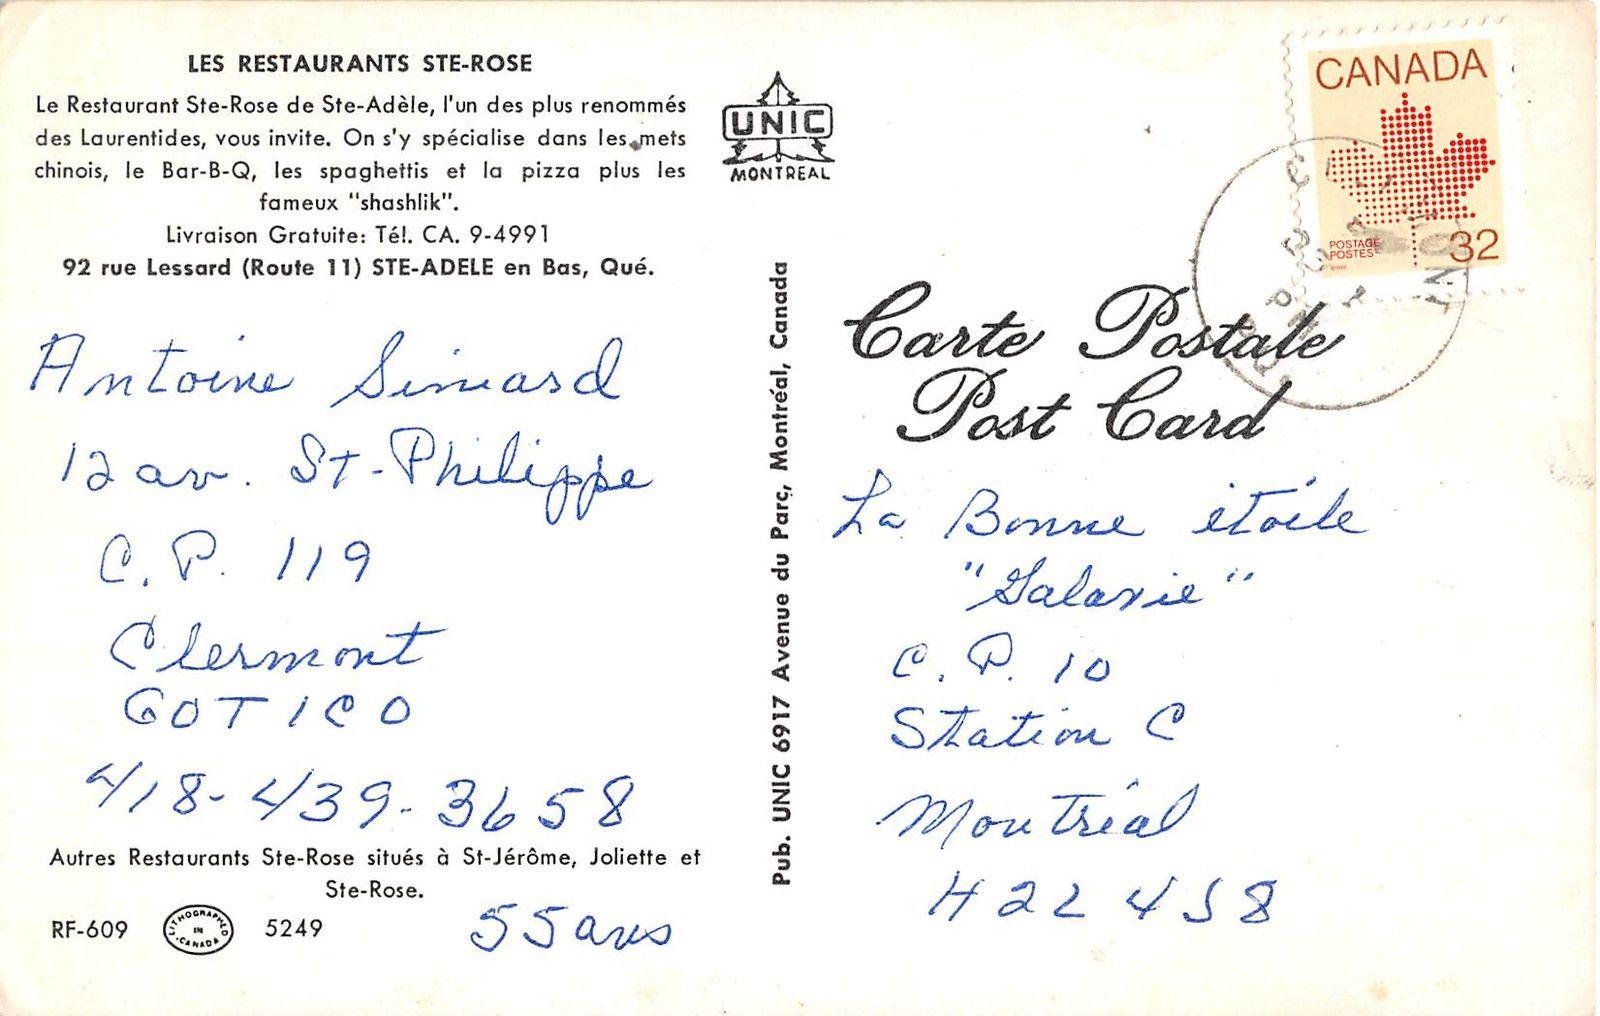 LES RESTAURANTS STE-ROSE
Le Restaurant Ste-Rose de Ste-Adèle, l'un des plus renommés
des Laurentides, vous invite. On s'y spécialise dans les mets
chinois, le Bar-B-Q, les spaghettis et la pizza plus les
fameux "shashlik".
Livraison Gratuite: Tél. CA. 9-4991
92 rue Lessard (Route 11) STE-ADELE en Bas, Qué.
Antoine Simard
12 av. St-Philippe
C.P. 119
Clermont
G0T 1C0
418-439-3658
Autres Restaurants Ste-Rose situés à St-Jérôme, Joliette et
Ste-Rose.
RF-609 LITHOGRAPHED IN CANADA 5249
55 ans
UNIC
MONTREAL
Pub. UNIC 6917 Avenue du Parc, Montréal, Canada
CANADA
POSTAGE
POSTES
32
Carte Postale
Post Card
La Bonne étoile
"Galaxie"
C.P. 10
Station C
Montréal
H2L 4J8